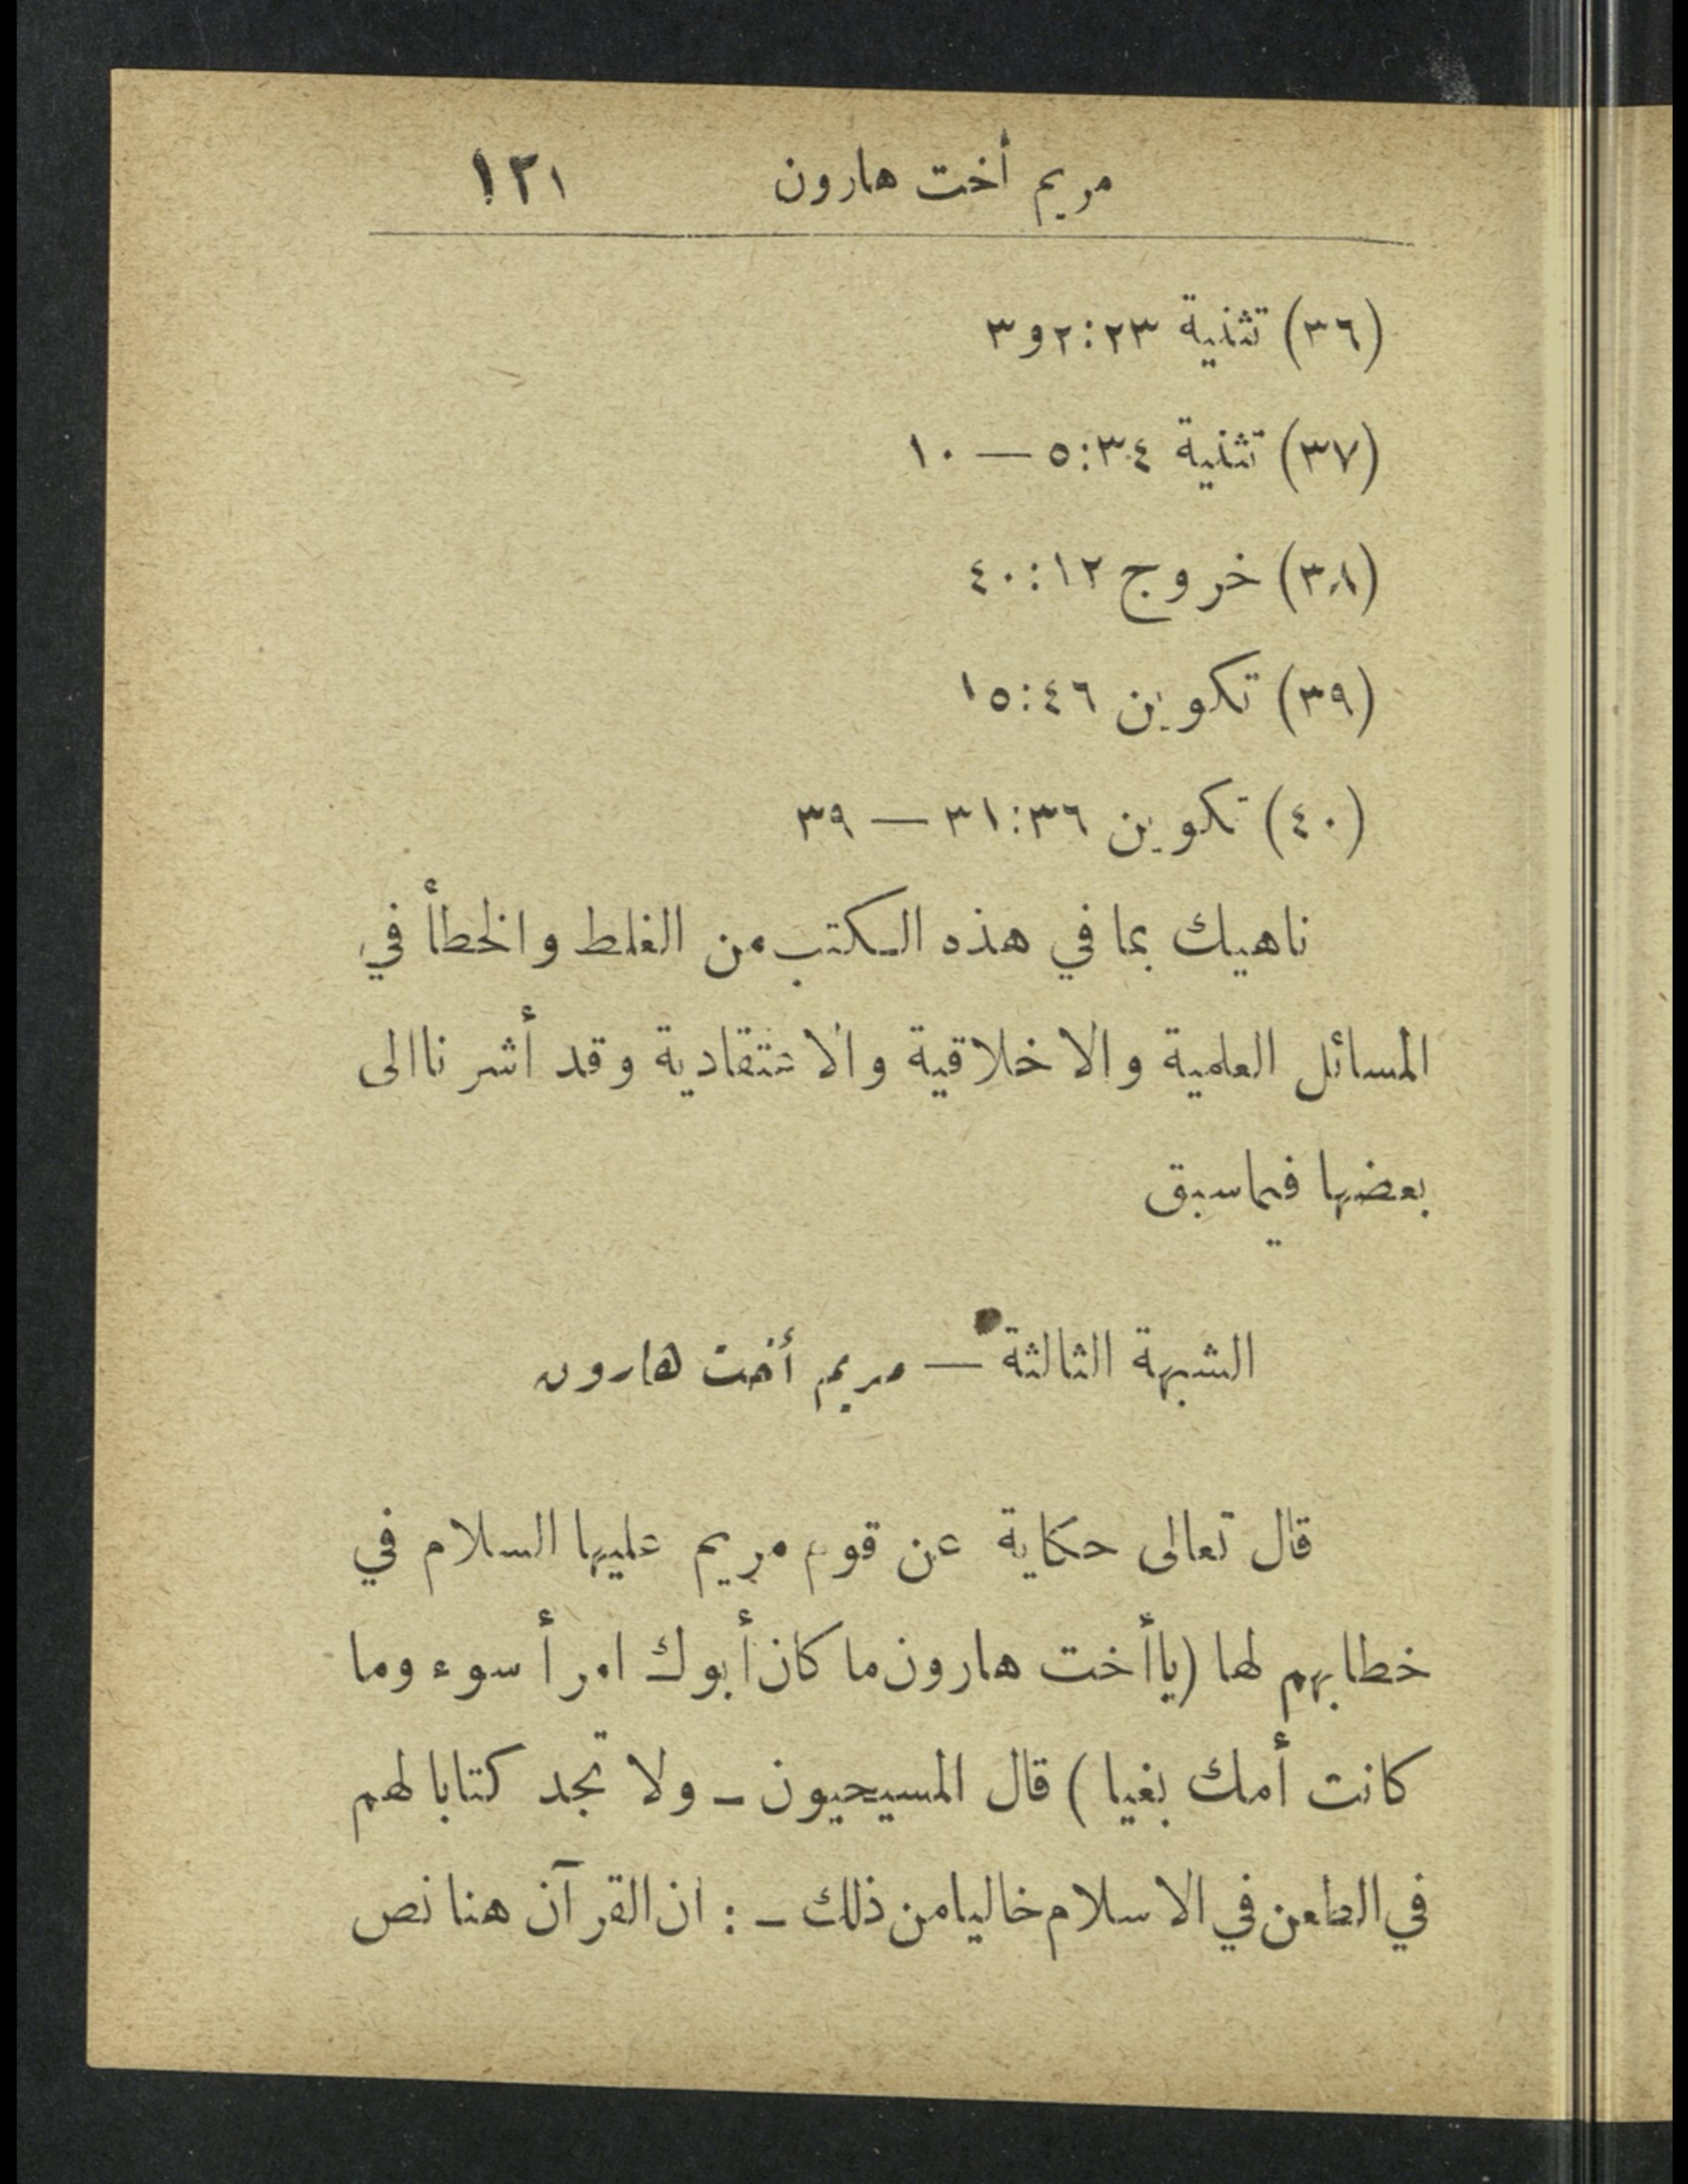 مريم أخت هارون ١٢١
(٣٦) تثنية ٢٣:٢و٣
(٣٧) تثنية ٣٤:٥ — ١٠
(٣٨) خروج ١٢:٤٠
(٣٩) تكوين ٤٦:١٥
(٤٠) تكوين ٣٦:٣١ — ٣٩
ناهيك بما في هذه الكتب من الغلط والخطأ في
المسائل العلمية والاخلاقية والاعتقادية وقد أشرنا الى
بعضها فيما سبق
الشبهة الثالثة — مريم أخت هارون
قال تعالى حكاية عن قوم مريم عليها السلام في
خطابهم لها (يا أخت هارون ما كان أبوك امرأ سوء وما
كانت أمك بغيا) قال المسيحيون - ولا تجد كتابا لهم
في الطعن في الاسلام خاليا من ذلك - : ان القرآن هنا نص